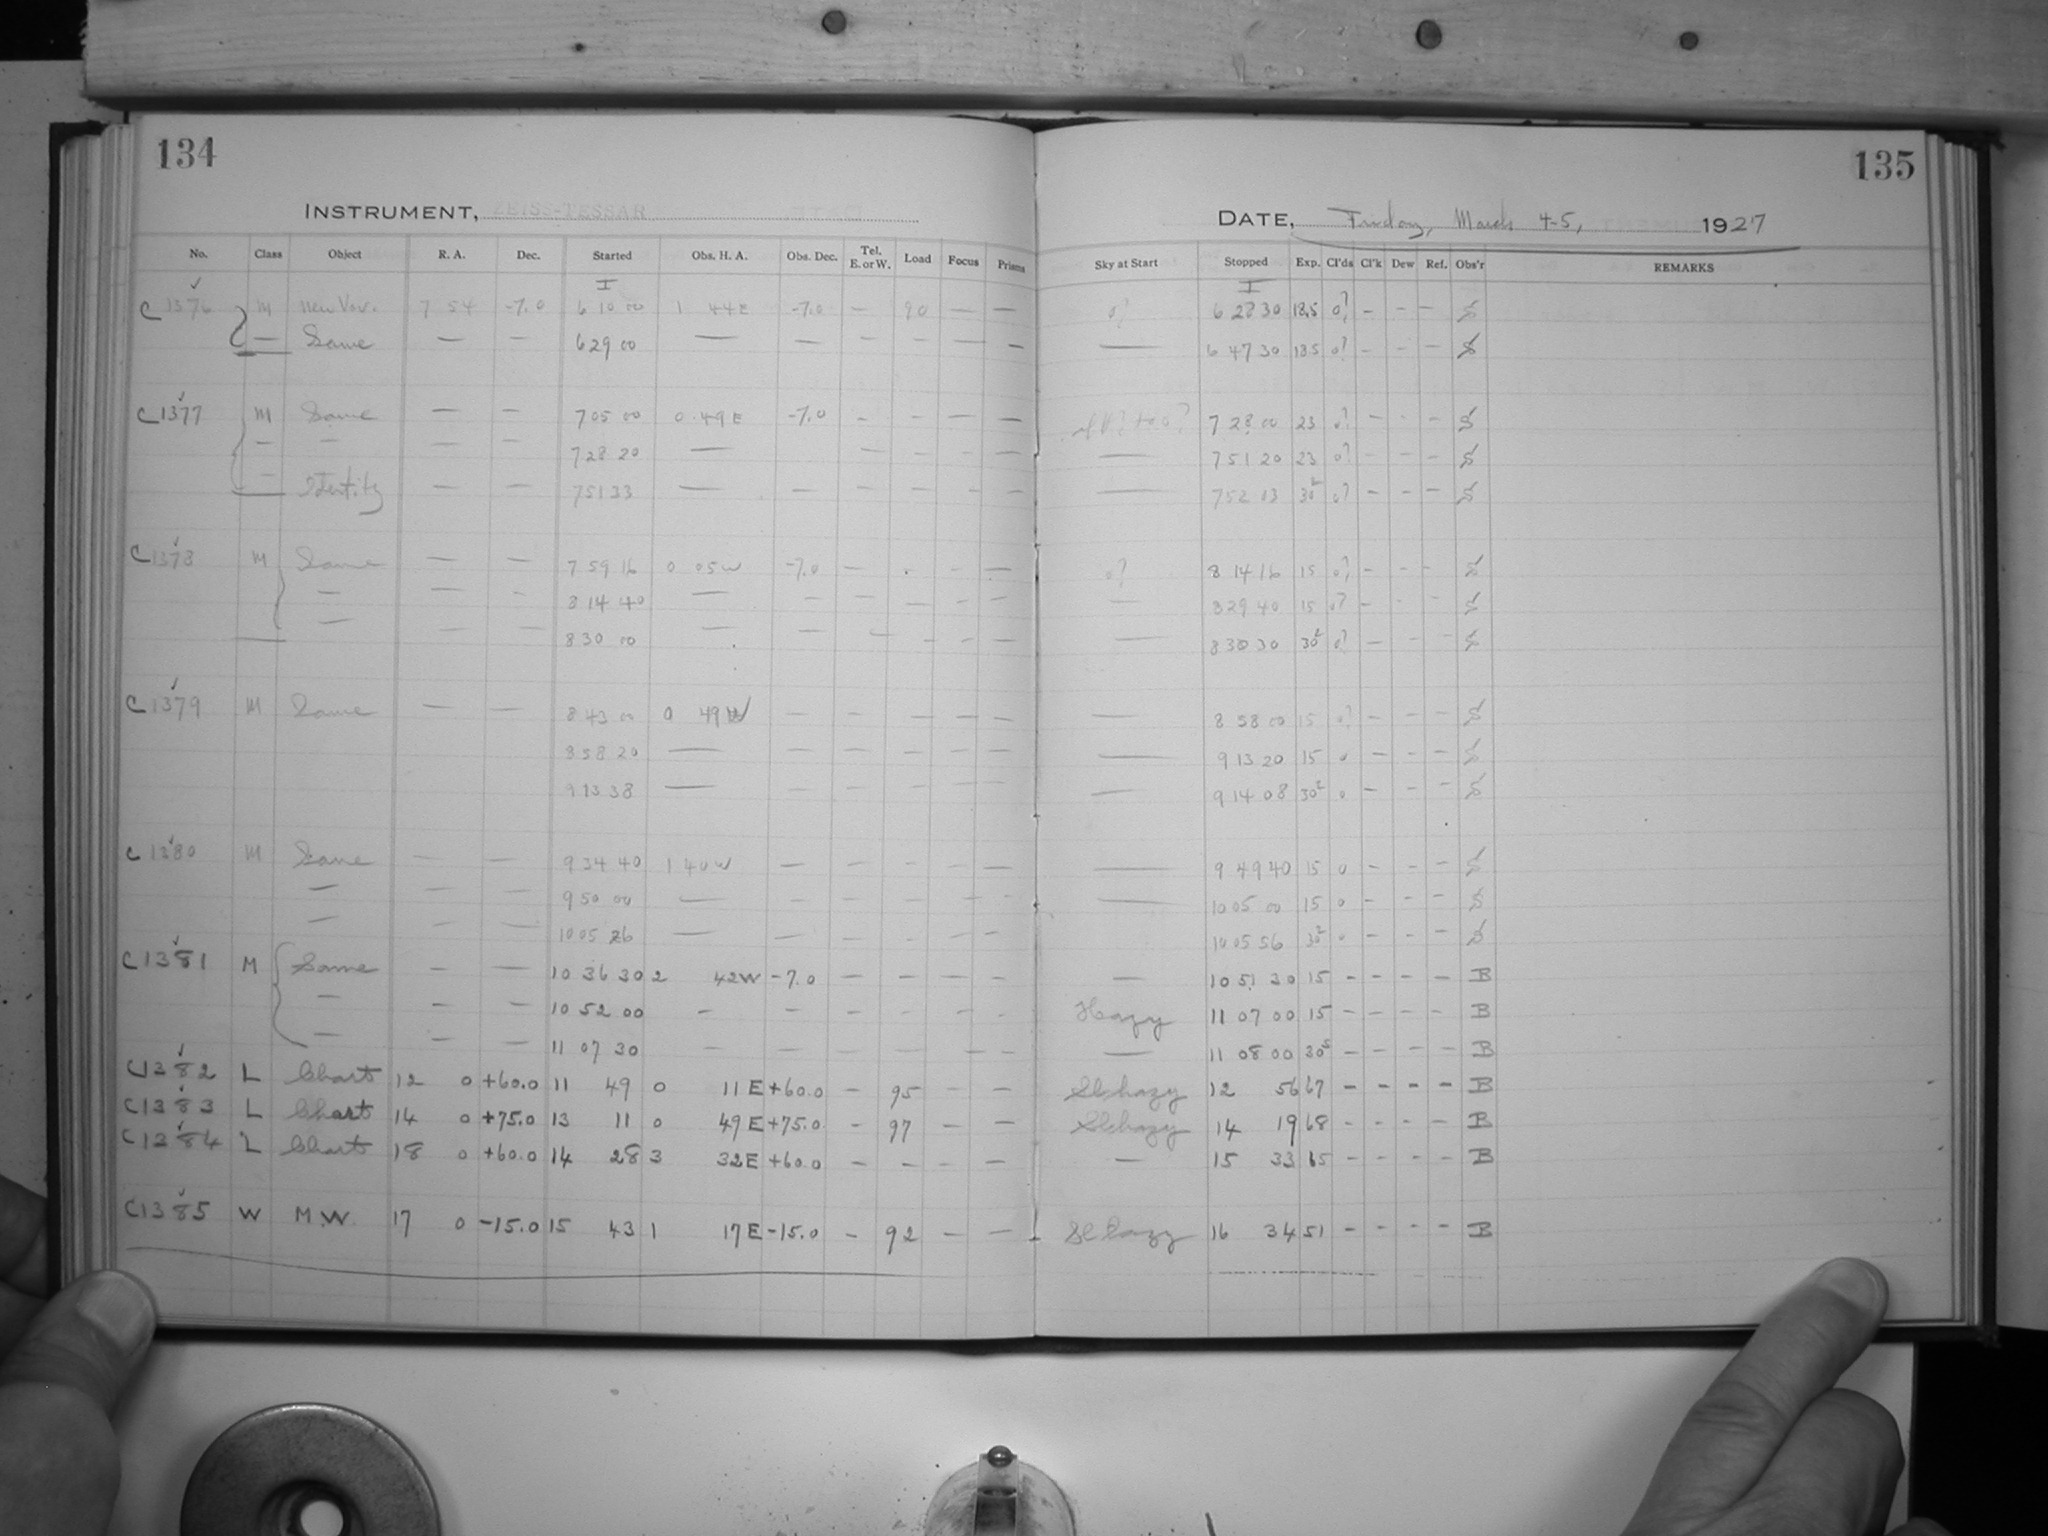 134
135
INSTRUMENT, ZEISS-TESSAR
DATE, Friday, March 4-5, 1927
No. Class Object R. A. Dec. Started Obs. H. A. Obs. Dec. Tel. E. or W. Load Focus Prisms Sky at Start Stopped Exp. Cl'ds Cl'k Dew Ref. Obs'r REMARKS
I I
C 1376 M New Var. 7 54 -7.0 6 10 00 1 44 E -7.0 — 90 — — 0? 6 28 30 18.5 0? - - - S
— Same — — 6 29 00 — — — — — — — 6 47 30 18.5 0? - - - S
C 1377 M Same — — 7 05 00 0 49 E -7.0 - - — — 7 28 00 23 0? - - - S
— — — — 7 28 20 — — — — — — 7 51 20 23 0? - - - S
— Identity — — 7 51 33 — — — — — - — — 7 52 03 30s 0? - - - S
C 1378 M Same — — 7 59 16 0 05 W -7.0 — - — 0? 8 14 16 15 0? - - - S
— — - 8 14 40 — — — — - — — 8 29 40 15 0? - - - S
— — — 8 30 00 — — — - - — — 8 30 30 30s 0? - - - S
C 1379 M Same — — 8 43 00 0 49 W — — — — — — 8 58 00 15 0? - - - S
8 58 20 — — — — — — — 9 13 20 15 0 - - - S
9 13 38 — — — — — — — 9 14 08 30s 0 - - - S
C 1380 M Same — — 9 34 40 1 40 W — — — — — — 9 49 40 15 0 - - - S
— — — 9 50 00 — — — — — - — 10 05 00 15 0 - - - S
— — — 10 05 26 — — — - — — 10 05 56 30s 0 - - - S
C 1381 M Same — — 10 36 30 2 42 W -7.0 — — — — — 10 51 30 15 - - - - B
— — — 10 52 00 — — — — - - Hazy 11 07 00 15 - - - - B
— — — 11 07 30 — — — — — — — 11 08 00 30s - - - - B
C 1382 L Chart 12 0 +60.0 11 49 0 11 E +60.0 — 95 — — Sl hazy 12 56 67 - - - - B
C 1383 L Chart 14 0 +75.0 13 11 0 49 E +75.0 — 97 — — Sl hazy 14 19 68 - - - - B
C 1384 L Chart 18 0 +60.0 14 28 3 32 E +60.0 — — — — — 15 33 65 - - - - B
C 1385 W M.W. 17 0 -15.0 15 43 1 17 E -15.0 — 92 — — Sl hazy 16 34 51 - - - - B